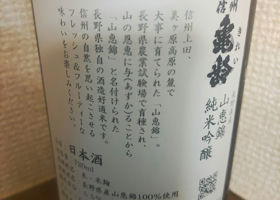 信州亀齢
きれい
長野県産
山恵錦
純米吟醸
信州上田、
美ヶ原高原の麓で
大事に育てられた「山恵錦」。
長野県農業試験場で育種され、
山の恩恵に与(あずか)ることから
「山恵錦」と名付けられた
長野県独自の酒造好適米です。
信州の自然を思い起こさせる
フレッシュ&フルーティーな
味わいをお楽しみください。
日本酒
720ml
長野県産山恵錦100%使用